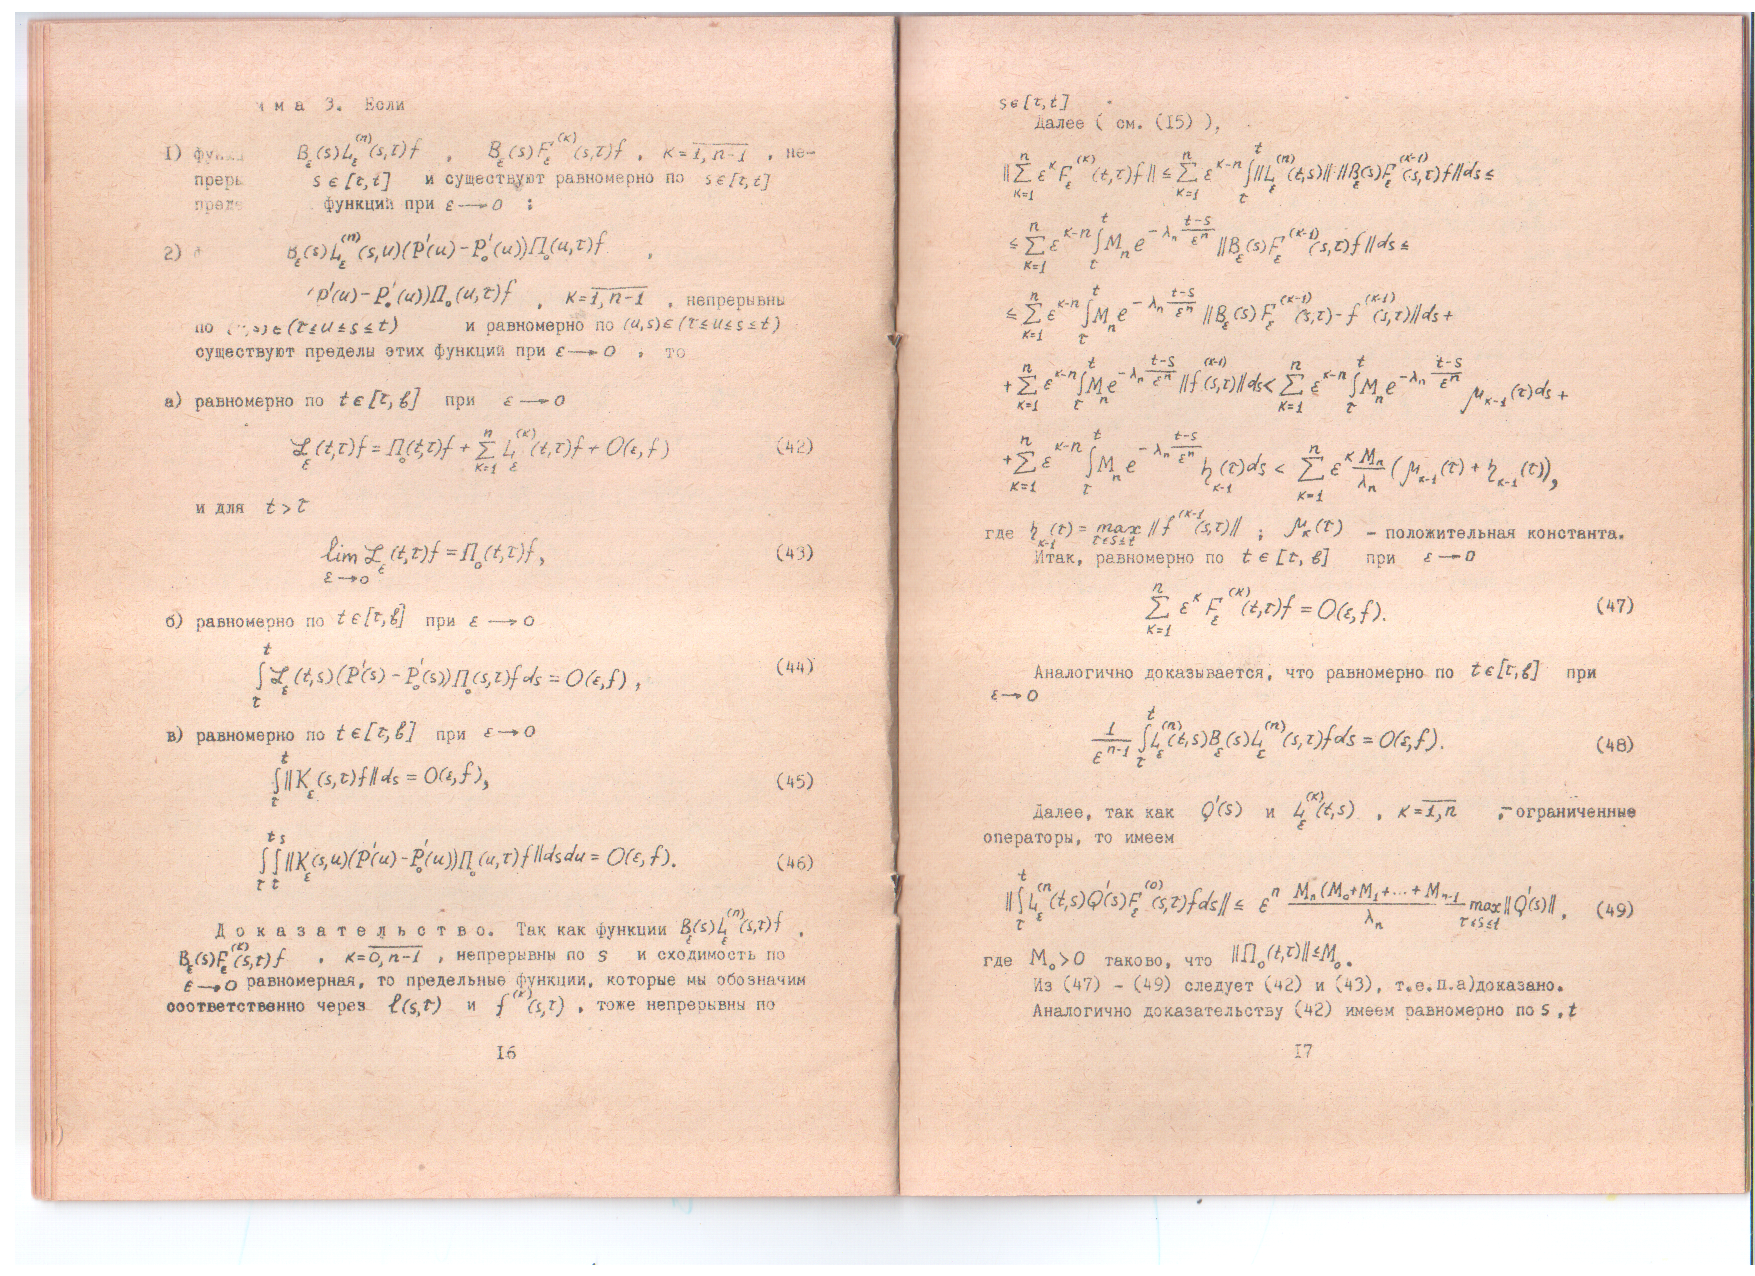 мма 3. Если
1) функ B_ε(s)L_ε^(n)(s,τ)f , B_ε(s)F_ε^(к)(s,τ)f , к=\overline{1,n-1} , не-
преры s∈[τ,t] и существуют равномерно по s∈[τ,t]
преде функций при ε→0 ;
2) B_ε(s)L_ε^(n)(s,u)(P'(u)-P_0'(u))П_0(u,τ)f ,
P'(u)-P_0'(u))П_0(u,τ)f , к=\overline{1,n-1} , непрерывны
по ,s)∈(τ≤u≤s≤t) и равномерно по (u,s)∈(τ≤u≤s≤t)
существуют пределы этих функций при ε→0 , то
а) равномерно по t∈[τ,в] при ε→0
ℒ_ε(t,τ)f=П_0(t,τ)f+∑_{к=1}^n L_ε^(к)(t,τ)f+O(ε,f) (42)
и для t>τ
lim_{ε→0} ℒ_ε(t,τ)f=П_0(t,τ)f, (43)
б) равномерно по t∈[τ,в] при ε→0
∫_τ^t ℒ_ε(t,s)(P'(s)-P_0'(s))П_0(s,τ)f ds=O(ε,f), (44)
в) равномерно по t∈[τ,в] при ε→0
∫_τ^t ||K_ε(s,τ)f||ds=O(ε,f), (45)
∫_τ^t∫_τ^s ||K_ε(s,u)(P'(u)-P_0'(u))П_0(u,τ)f||dsdu=O(ε,f). (46)
Доказательство. Так как функции B_ε(s)L_ε^(n)(s,τ)f ,
B_ε(s)F_ε^(к)(s,τ)f , к=\overline{0,n-1} , непрерывны по s и сходимость по
ε→0 равномерная, то предельные функции, которые мы обозначим
соответственно через ℓ(s,τ) и f^(к)(s,τ) , тоже непрерывны по
I6
s∈[τ,t] .
Далее ( см. (I5) ),
||∑_{к=1}^n ε^к F_ε^(к)(t,τ)f||≤∑_{к=1}^n ε^{к-n}∫_τ^t||L_ε^(n)(t,s)||·||B_ε(s)F_ε^(к-1)(s,τ)f||ds≤
≤∑_{к=1}^n ε^{к-n}∫_τ^t M_n e^{-λ_n (t-s)/ε^n}||B_ε(s)F_ε^(к-1)(s,τ)f||ds≤
≤∑_{к=1}^n ε^{к-n}∫_τ^t M_n e^{-λ_n (t-s)/ε^n}||B_ε(s)F_ε^(к-1)(s,τ)-f^(к-1)(s,τ)||ds+
+∑_{к=1}^n ε^{к-n}∫_τ^t M_n e^{-λ_n (t-s)/ε^n}||f^(к-1)(s,τ)||ds<∑_{к=1}^n ε^{к-n}∫_τ^t M_n e^{-λ_n (t-s)/ε^n} μ_{к-1}(τ)ds+
+∑_{к=1}^n ε^{к-n}∫_τ^t M_n e^{-λ_n (t-s)/ε^n} η_{к-1}(τ)ds<∑_{к=1}^n ε^к M_n/λ_n (μ_{к-1}(τ)+η_{к-1}(τ)),
где η_{к-1}(τ)=max_{τ≤s≤t}||f^(к-1(s,τ)|| ; μ_к(τ) - положительная константа.
Итак, равномерно по t∈[τ,в] при ε→0
∑_{к=1}^n ε^к F_ε^(к)(t,τ)f=O(ε,f). (47)
Аналогично доказывается, что равномерно по t∈[τ,в] при
ε→0
1/ε^{n-1} ∫_τ^t L_ε^(n)(t,s)B_ε(s)L_ε^(n)(s,τ)fds=O(ε,f). (48)
Далее, так как Q'(s) и L_ε^(к)(t,s) , к=\overline{1,n} ,- ограниченные
операторы, то имеем
||∫_τ^t L_ε^(n(t,s)Q'(s)F_ε^(0)(s,τ)fds||≤ ε^n M_n(M_0+M_1+...+M_{n-1}/λ_n max_{τ≤s≤t}||Q'(s)||, (49)
где M_0>0 таково, что ||П_0(t,τ)||≤M_0.
Из (47) - (49) следует (42) и (43), т.е.п.а)доказано.
Аналогично доказательству (42) имеем равномерно по s,t
I7